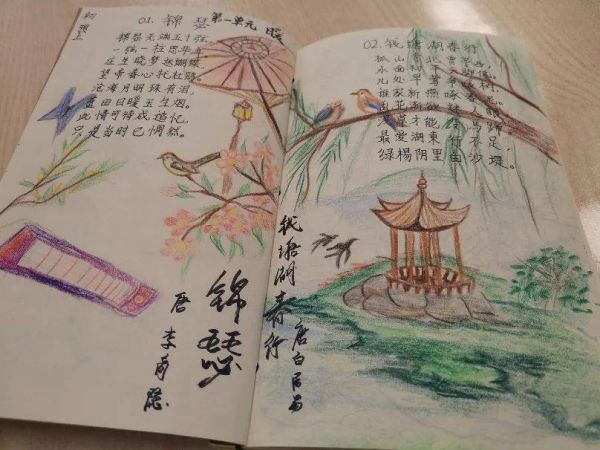 01. 锦瑟 第一单元
锦瑟无端五十弦,
一弦一柱思华年。
庄生晓梦迷蝴蝶,
望帝春心托杜鹃。
沧海月明珠有泪,
蓝田日暖玉生烟。
此情可待成追忆,
只是当时已惘然。
锦瑟
唐 李商隐
02. 钱塘湖春行
孤山寺北贾亭西,
水面初平云脚低。
几处早莺争暖树,
谁家新燕啄春泥。
乱花渐欲迷人眼,
浅草才能没马蹄。
最爱湖東行不足,
绿楊阴里白沙堤。
钱塘湖春行
唐 白居易